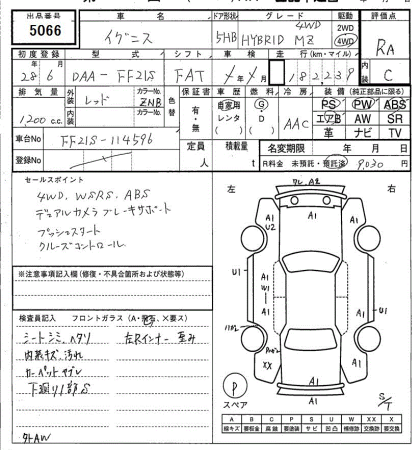 出品番号 車名 ドア形状 グレード 駆動 評価点
5066 イグニス 5HB HYBRID MZ 4WD 2WD 4WD RA
初度登録 型式 シフト 車検 走行(km・マイル) 内装
28年6月 DAA-FF21S FAT 年 月 182239 C
排気量 外装色 カラーNo. 色替 保証書 車歴 燃料 冷房 装備(純正部品に限る)
1200 c.c. レッド ZNB 有・無 自家用 G AAC PS PW ABS
内装色 カラーNo. レンタ D エアB AW SR
( ) ( ) 革 ナビ TV
車台No FF21S-114596 定員 人 積載量 t 名変期限 年 月 日
登録No R料金 未預託・預託済 9,030 円
セールスポイント
4WD. WSRS. ABS
デュアルカメラブレーキサポート
プッシュスタート
クルーズコントロール
左 右
A1
A1 U2
A1
A1
U1
A1
W1
A1
A1
U1
A1
XX
A1
A1
A1
P
スペア
S/T
※注意事項記入欄(修復・不具合箇所および状態等)
検査員記入 フロントガラス(A・飛石、X要ス)
シートシミ、ヘタリ 左Rインナー歪み
内装キズ、汚れ
カーペットヤブレ
下廻り1部S
社外AW
A B C P S U W X XX
線キズ 要板金 腐食 要塗装 サビ 凹凸 補修跡 交換跡 要交換